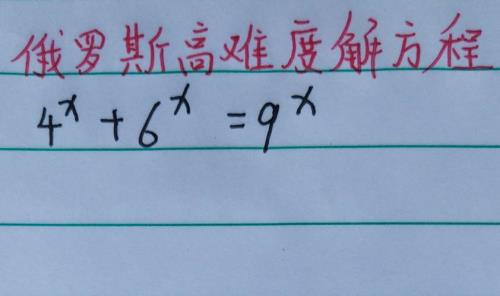 俄罗斯高难度解方程
4ˣ + 6ˣ = 9ˣ